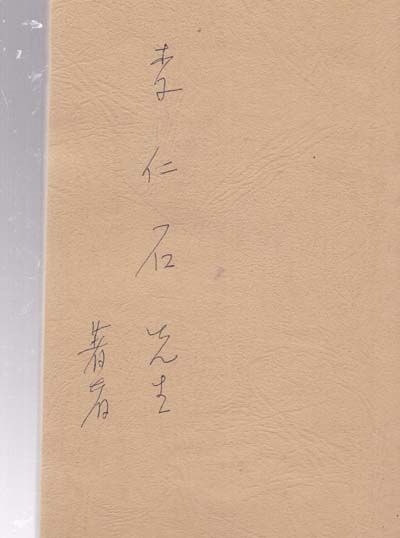 李仁石 先生
著者